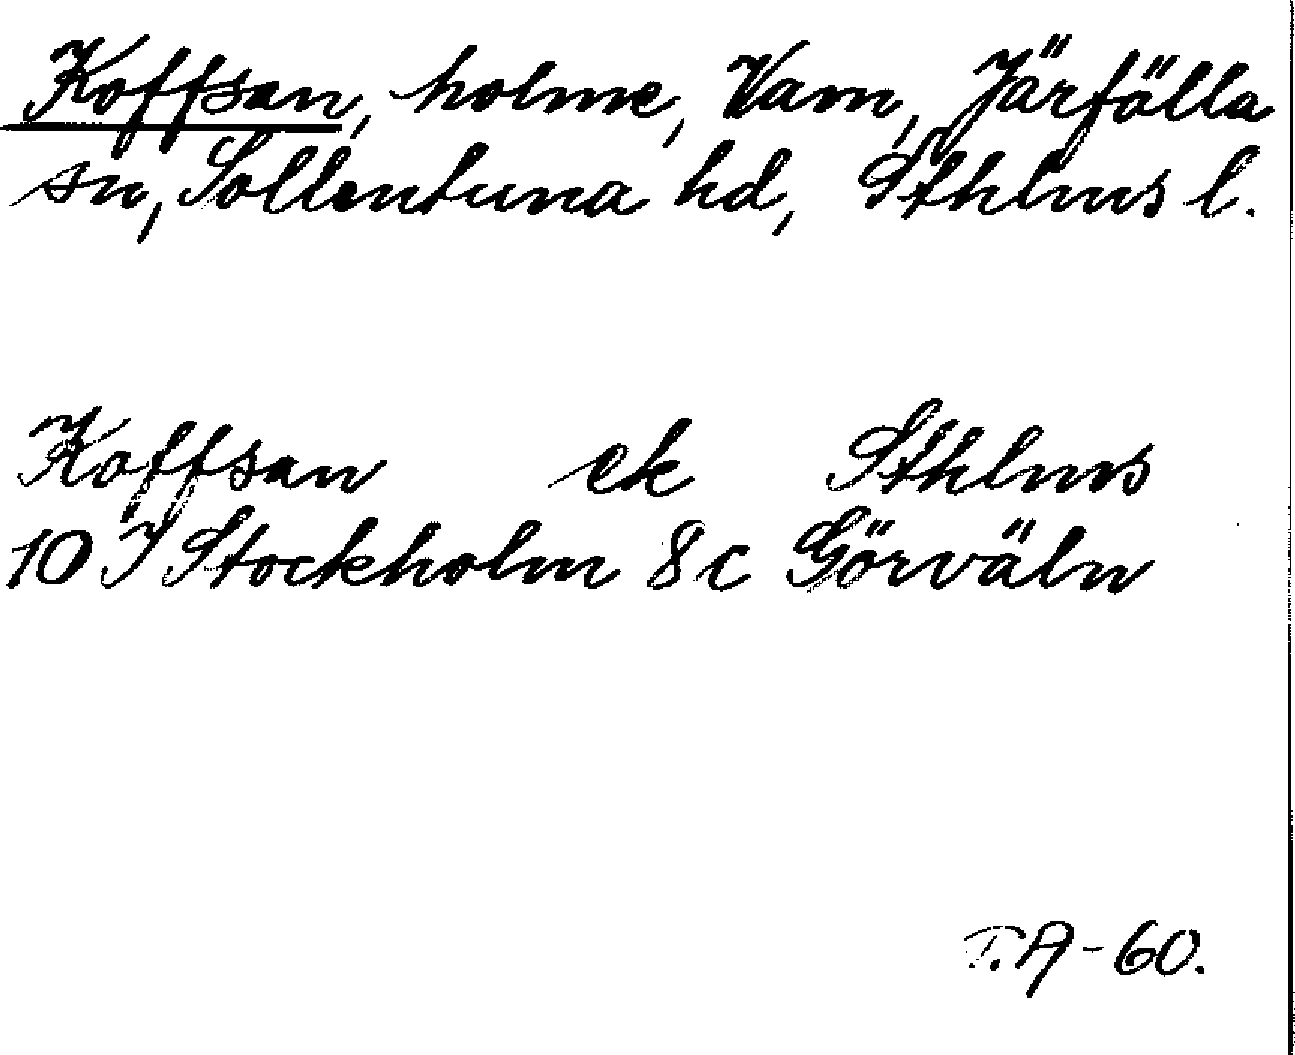 Koffsan, holme, Vam, Järfälla
sn, Sollentuna hd, Sthlms l.
Koffsan ek Sthlms
10 I Stockholm 8c Görväln
T.A-60.